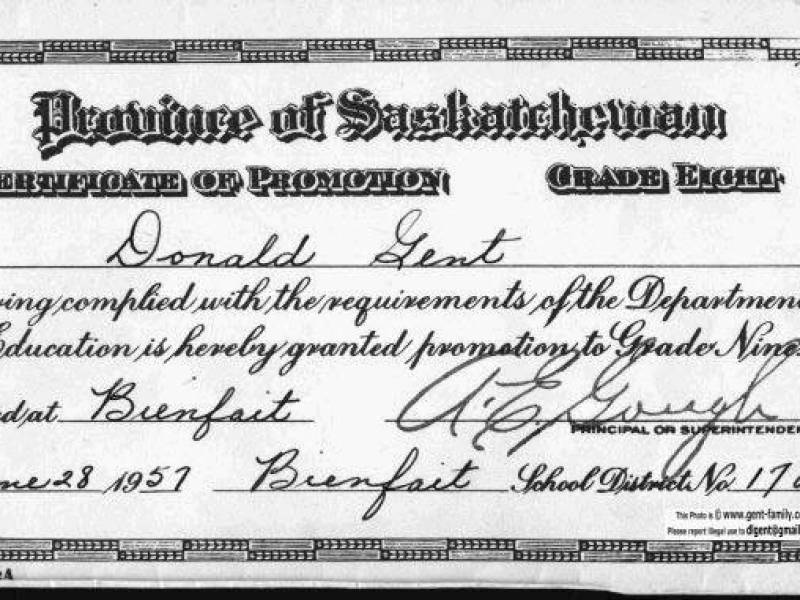 Province of Saskatchewan
ERTIFICATE OF PROMOTION GRADE EIGHT
Donald Gent
ving complied with the requirements of the Departmen
Education is hereby granted promotion to Grade Nine
ed at Bienfait A. E. Gough
PRINCIPAL OR SUPERINTENDEN
ne 28 1957 Bienfait School District No. 17
This Photo is © www.gent-family.c
Please report illegal use to digent@gmail